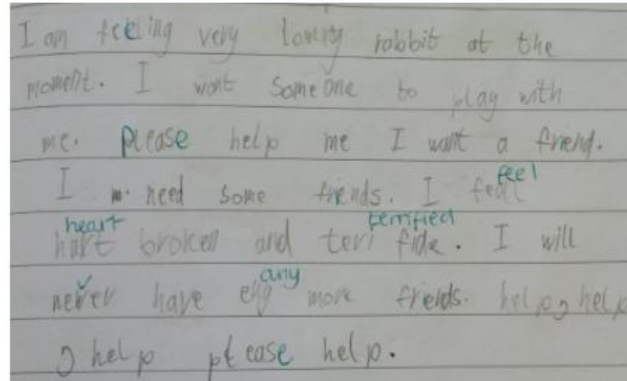 I am feeling very lonely rabbit at the
moment. I want someone to play with
me. please help me I want a friend.
I m. need some friends. I feal feel
hart heart broken and teri fide terrified. I will
never have eny any more friends. help, help
, help please help.